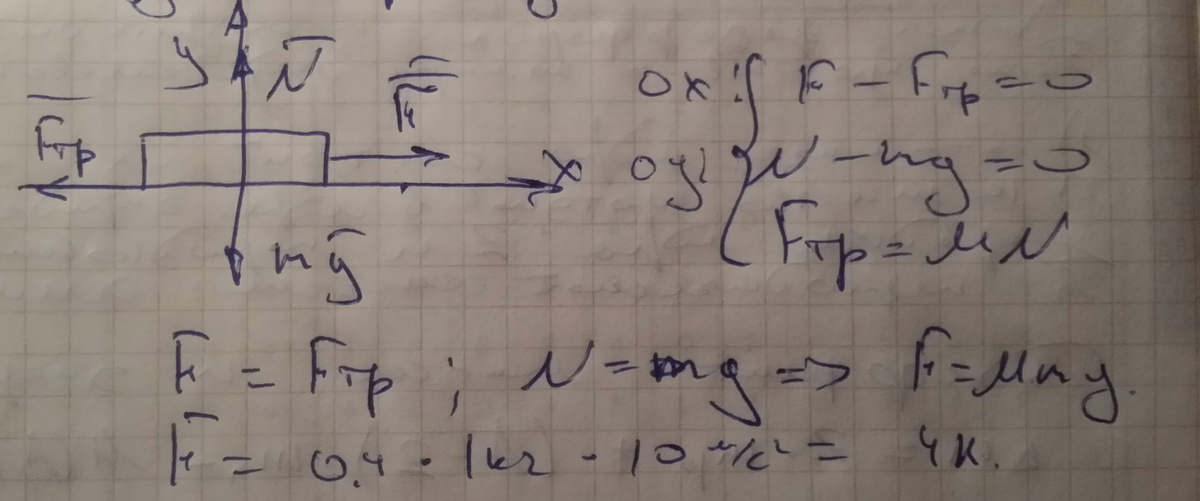 y N̅ F̅
F̅тр x
mg̅
ox: F - Fтр = 0
oy: N - mg = 0
Fтр = μN
F = Fтр ; N = mg => F = μmg.
F = 0,4 · 1кг · 10 м/с² = 4н.